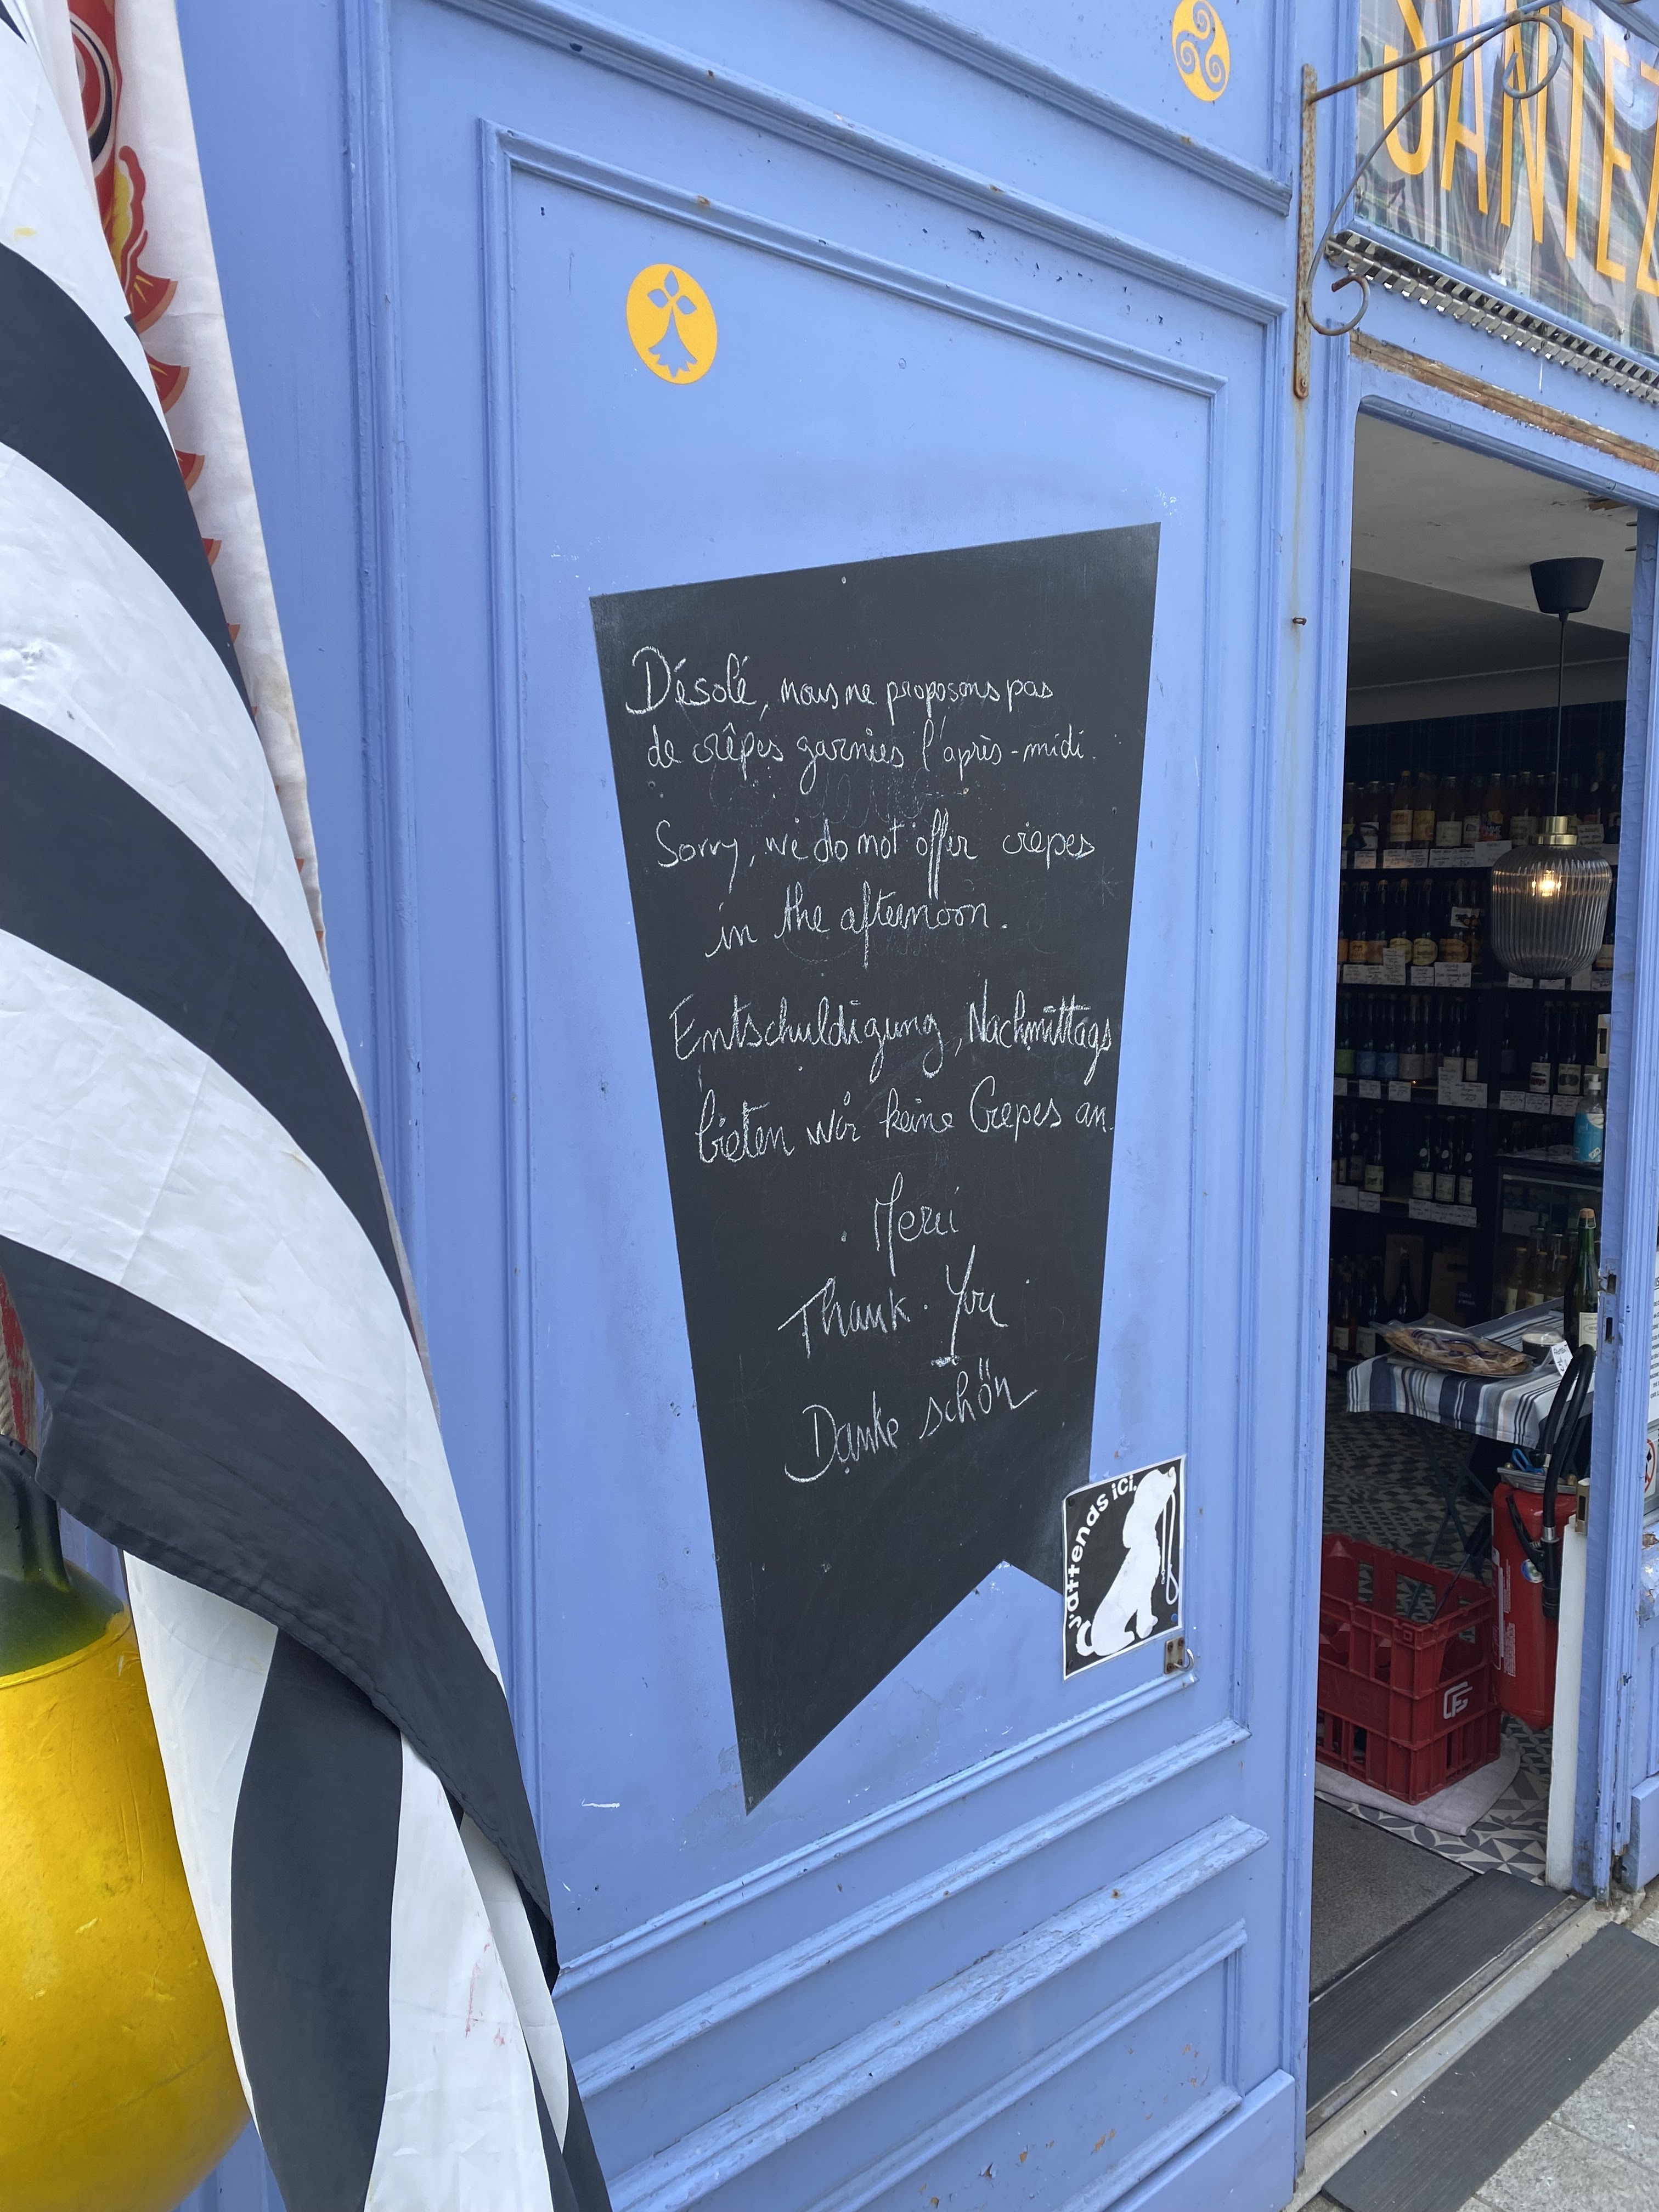 SANTEZ
Désolé, nous ne proposons pas
de crêpes garnies l'après-midi.
Sorry, we do not offer crêpes
in the afternoon.
Entschuldigung, Nachmittags
bieten wir keine Crepes an.
Merci
Thank You
Danke schön
J'attends ici.